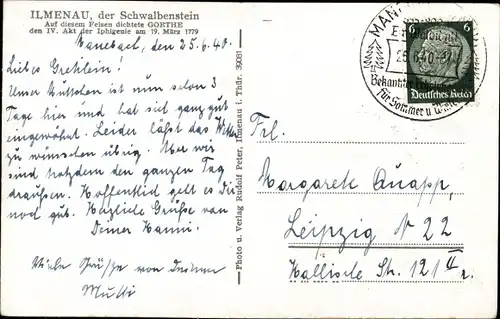 ILMENAU, der Schwalbenstein
Auf diesem Felsen dichtete GOETHE
den IV. Akt der Iphigenie am 19. März 1779
Manebach, den 25.6.40.
Liebes Gretelein!
Unser Muttchen ist nun schon 3
Tage hier und hat sich ganz gut
eingewöhnt. Leider läßt das Wetter
zu wünschen übrig. Aber wir
sind trotzdem den ganzen Tag
draußen. Hoffentlich geht es Dir
noch gut. Herzliche Grüße von
Deiner Hanni.
Viele Grüße von Deiner
Mutti
Photo u. Verlag Rudolf Peter, Ilmenau i. Thür. 39081
MAN
25.6.40
Bekannter
für Sommer u. Winter
6
6
Deutsches Reich
Frl.
Margarete Knapp,
Leipzig N 22
Hallische Str. 121 II